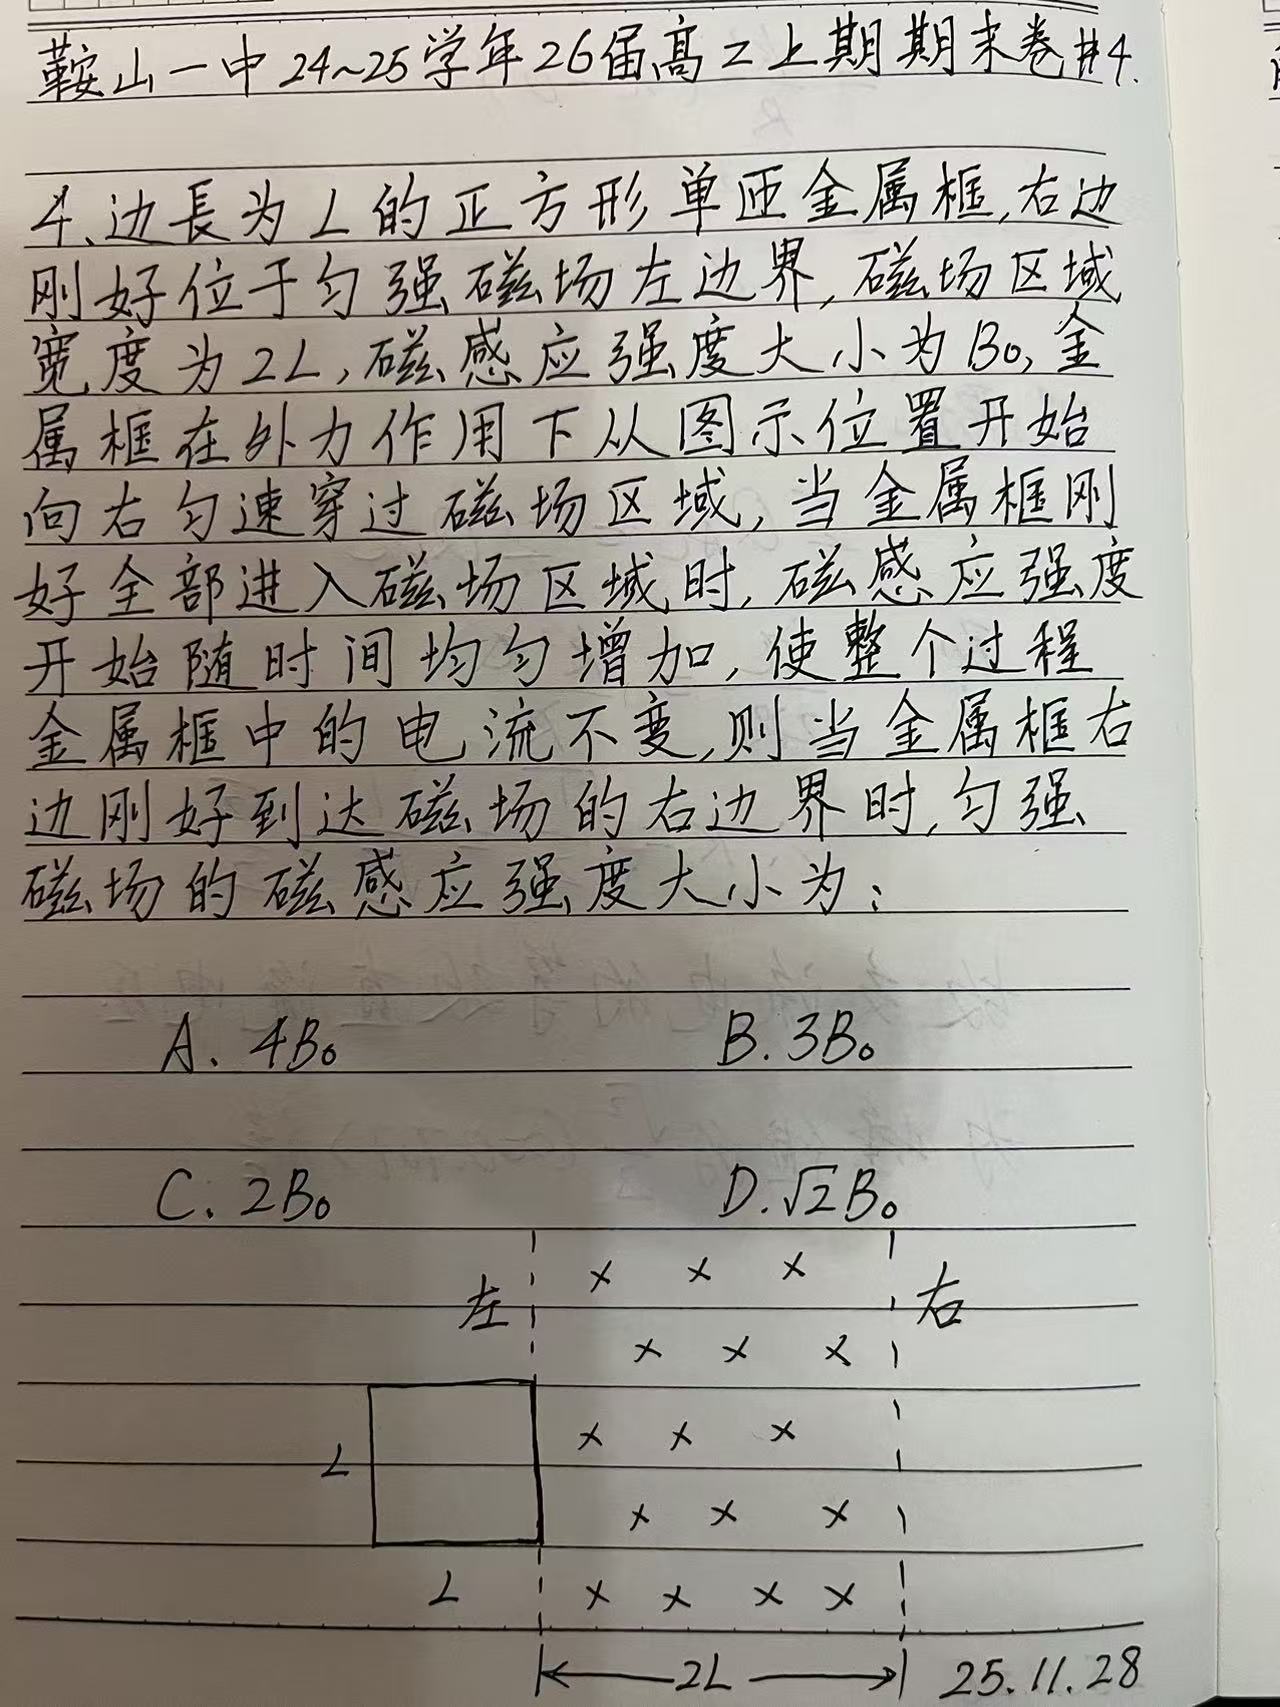 鞍山一中24~25学年26届高二上期期末卷#4.
4、边長为L的正方形单匝金属框,右边
刚好位于匀强磁场左边界,磁场区域
宽度为2L,磁感应强度大小为B₀,金
属框在外力作用下从图示位置开始
向右匀速穿过磁场区域,当金属框刚
好全部进入磁场区域时,磁感应强度
开始随时间均匀增加,使整个过程
金属框中的电流不变,则当金属框右
边刚好到达磁场的右边界时,匀强
磁场的磁感应强度大小为:
A. 4B₀ B. 3B₀
C. 2B₀ D. √2B₀
左 × × × 右
× × ×
× × ×
L
× × ×
L × × × ×
2L 25.11.28